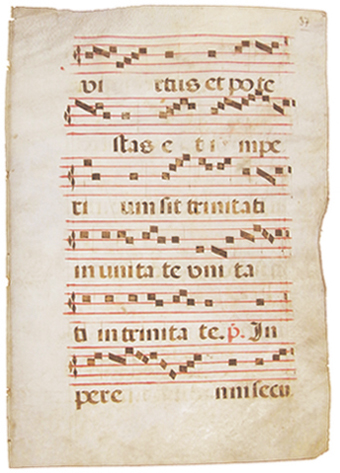 37
vi rtus et pote
stas e t i mpe
ri um sit trinitati
in unita te uni ta
ti in trinita te. p. In
pere nni secu